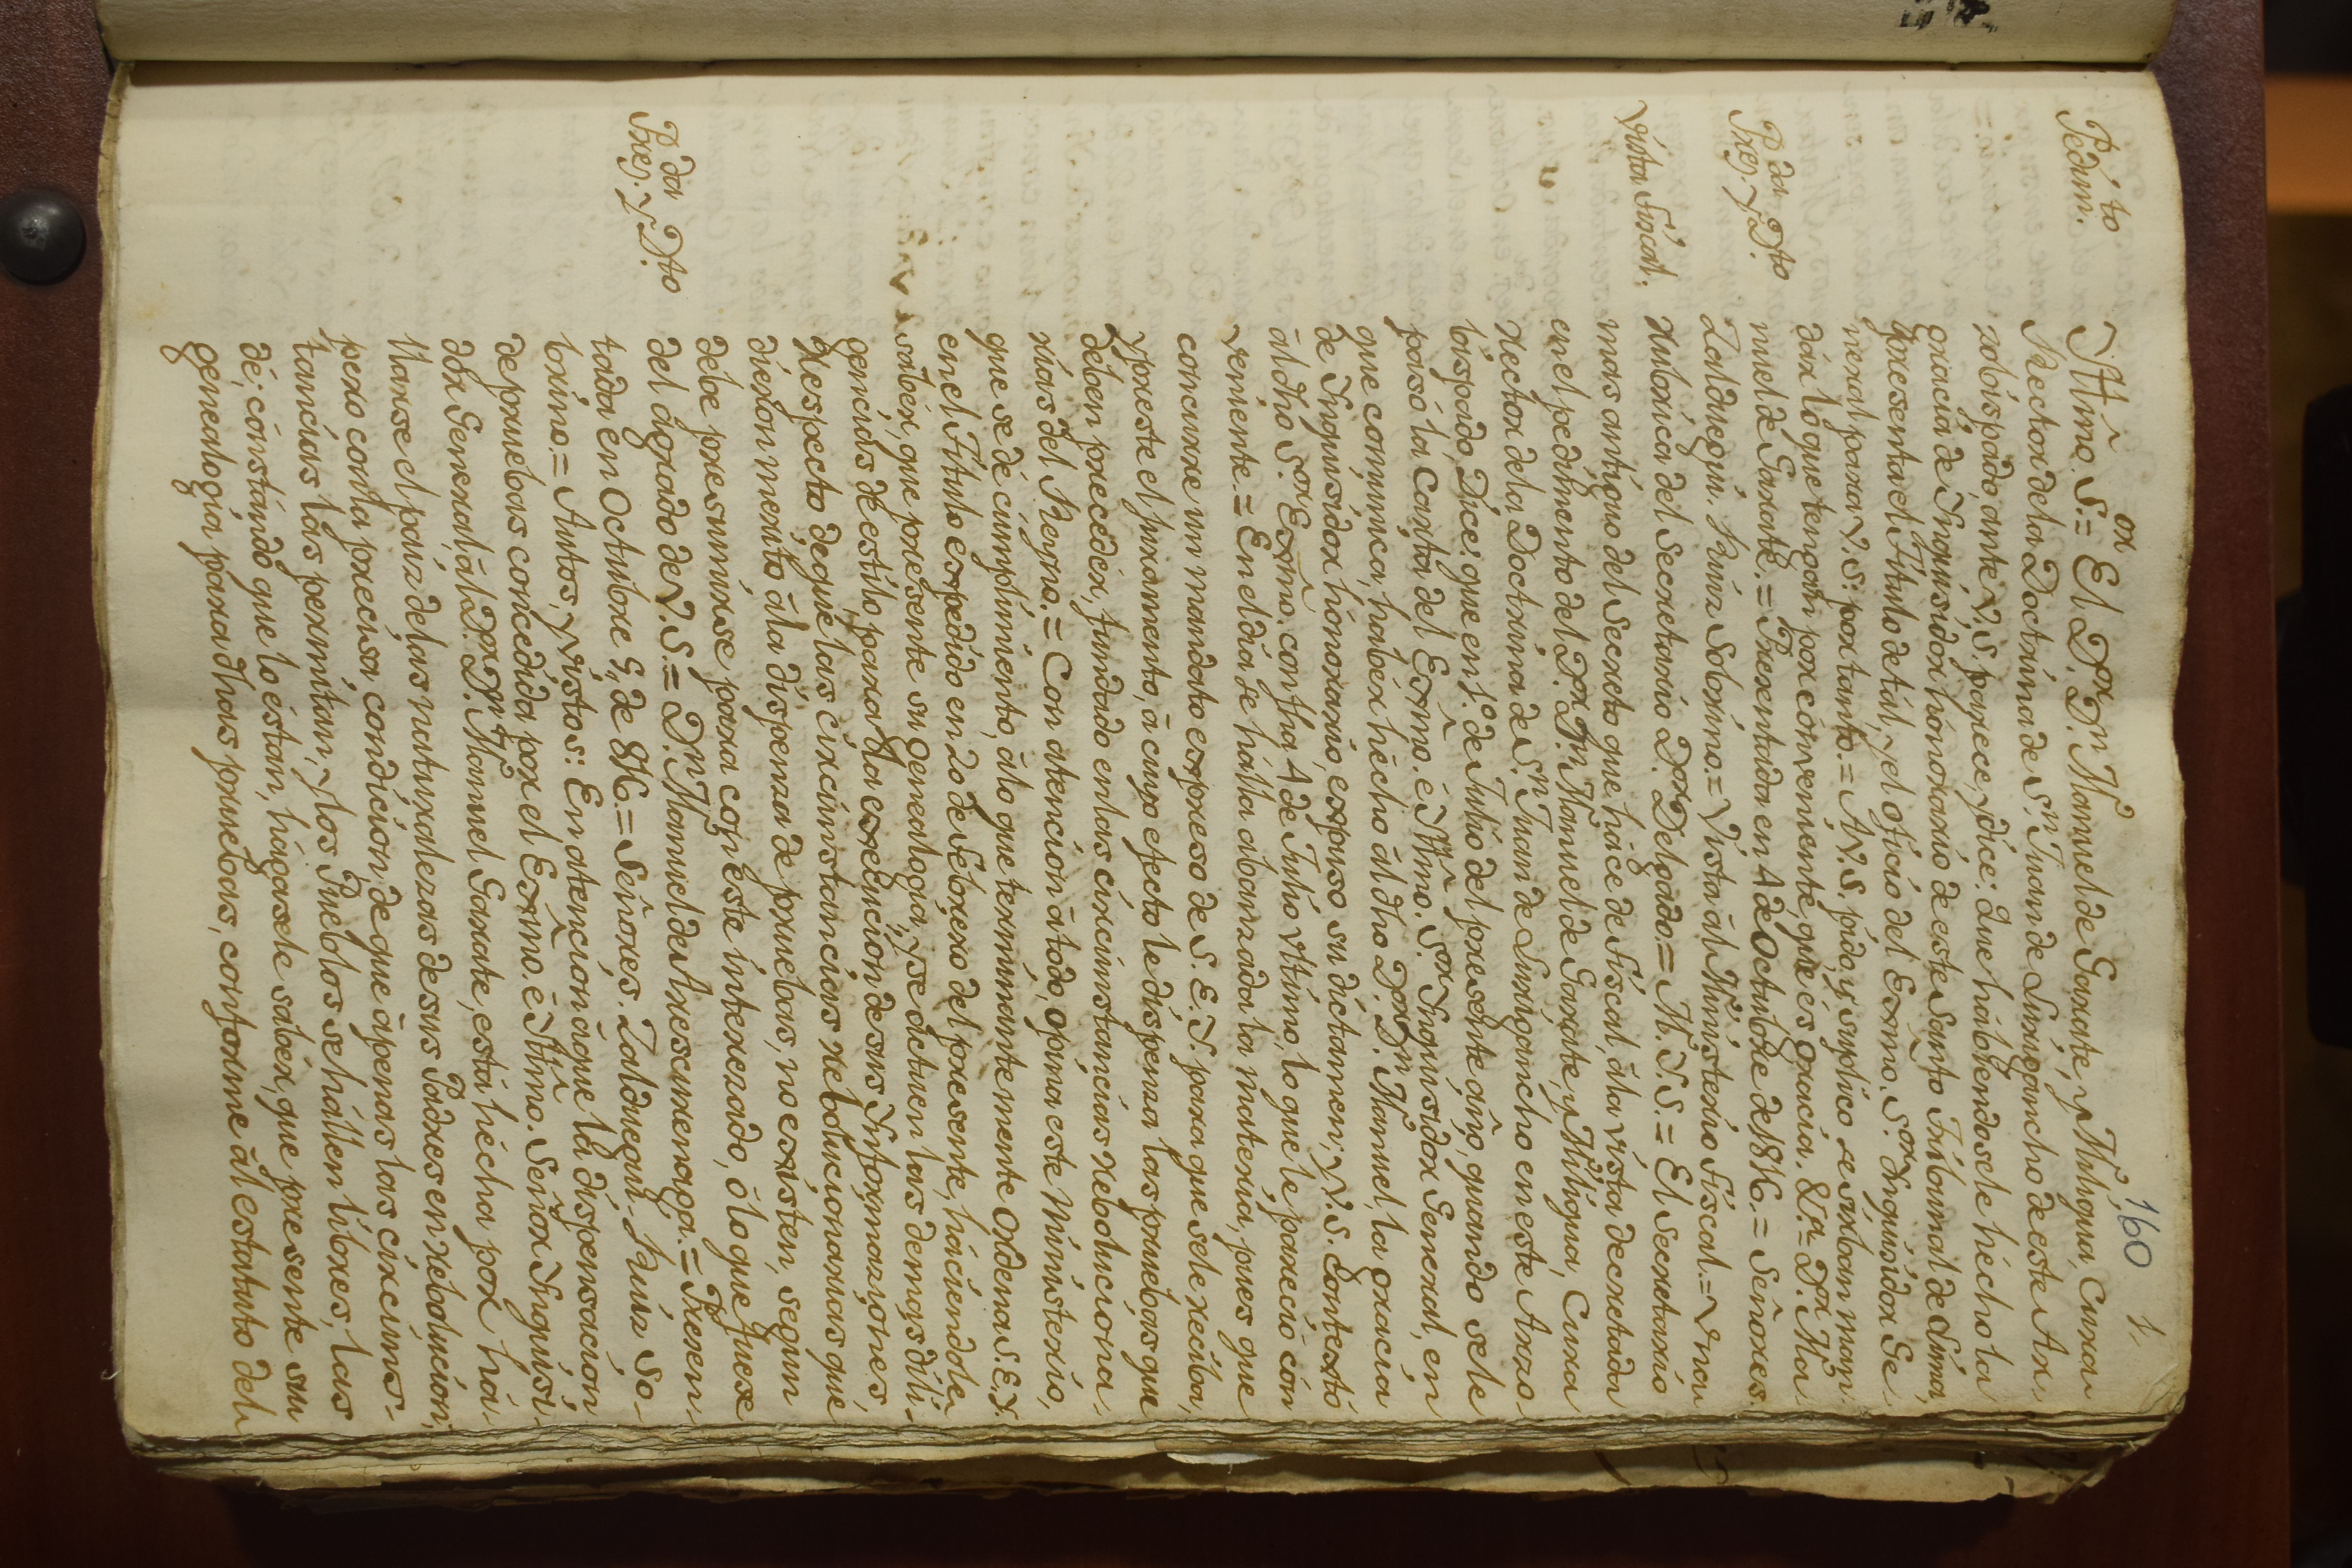 160
1,
Pedim.to
Yltmõ. S.or = El D.or D.n M.l Manuel de Garate, y M.l Migua, Cura
Rector de la Doctrina de S.n Juan de Lurigancho de este Ar-
zobispado, ante V. S. parece, y dice: Que habiendosele hecho la
gracia de Inquisidor honorario de este Santo Tribunal de Lima,
presenta el Titulo de tal, y el oficio del Exmõ. S.or Inquisidor Ge
neral para V. S: por tanto. = A V. S. pido, y suplico se sirban man
dar lo que tengan por conveniente, que es gracia. &.a = D.or Ma
Pres.da y D.to
nuel de Garate. = Presentada en 4 de Octubre de 1816. = Señores.
Zalduegui. Ruiz Sobrino. = Vista ál Ministerio Fiscal. = Una
rubrica del Secretario D.or Delgado = M. Y. S. = El Secretario
Vista Fiscal.
mas antiguo del Secreto que hace de Fiscal, á la vista decretada
en el pedimento del D.or D.n Manuel de Garate, y Migua, Cura
Rector de la Doctrina de S.n Juan de Lurigancho en este Arzo-
bispado, Dice: que en 1.º de Julio del presente año, quando se le
pasó la Carta del Exmõ. é Yltmõ. S.or Inquisidor General, en
que comunica, haber hecho ál dho D.or D.n Manuel, la gracia
de Inquisidor honorario, expuso su dictamen; V. S. Contextó
ál dho S.or Exmõ. con fha 4 de Julio ultimo, lo que le pareció con
veniente. = En el dia se halla abanzada la materia, pues que
concurre un mandato expreso de S. E. Y. para que se le reciba,
y preste el juramento, á cuyo efecto le dispensa las pruebas que
deben preceder, fundado en las circunstancias reboluciona-
rias del Reyno. = Con atencion á todo, opina este Ministerio,
que se dé cumplimiento, á lo que terminantemente Ordena S. E. Y.
en el Titulo expedido en 20 de Febrero del presente, haciendole
saber, que presente su genealogia, y se actuen las demas dili-
gencias de estilo, para la execucion de sus Informaziones,
respecto de que las circunstancias rebolucionarias que
dieron merito á la dispensa de pruebas, no existen, segun
debe presumirse para con este interezado, ó lo que fuese
del agrado de V. S. = D.n Manuel de Arescurenaga. = Presen-
Pres.da y D.to
tada en Octubre 5,, de 816. = Señores. Zalduegui. Ruiz So-
brino. = Autos, y vistos: En atencion á que la dispensacion
de pruebas concedida por el Exmõ. é Yltmõ. Señor Inquisi-
dor General, ál D.or D.n Manuel Garate, está hecha por ha-
llarse el pais de las naturalezas de sus Padres en rebolucion;
pero con la precisa condicion de que ápenas las circuns-
tancias las permitan, y los Pueblos se hallen libres, las
dé; constando que lo éstan, hagasele saber, que presente su
genealogia para dhas pruebas, conforme ál estatuto del